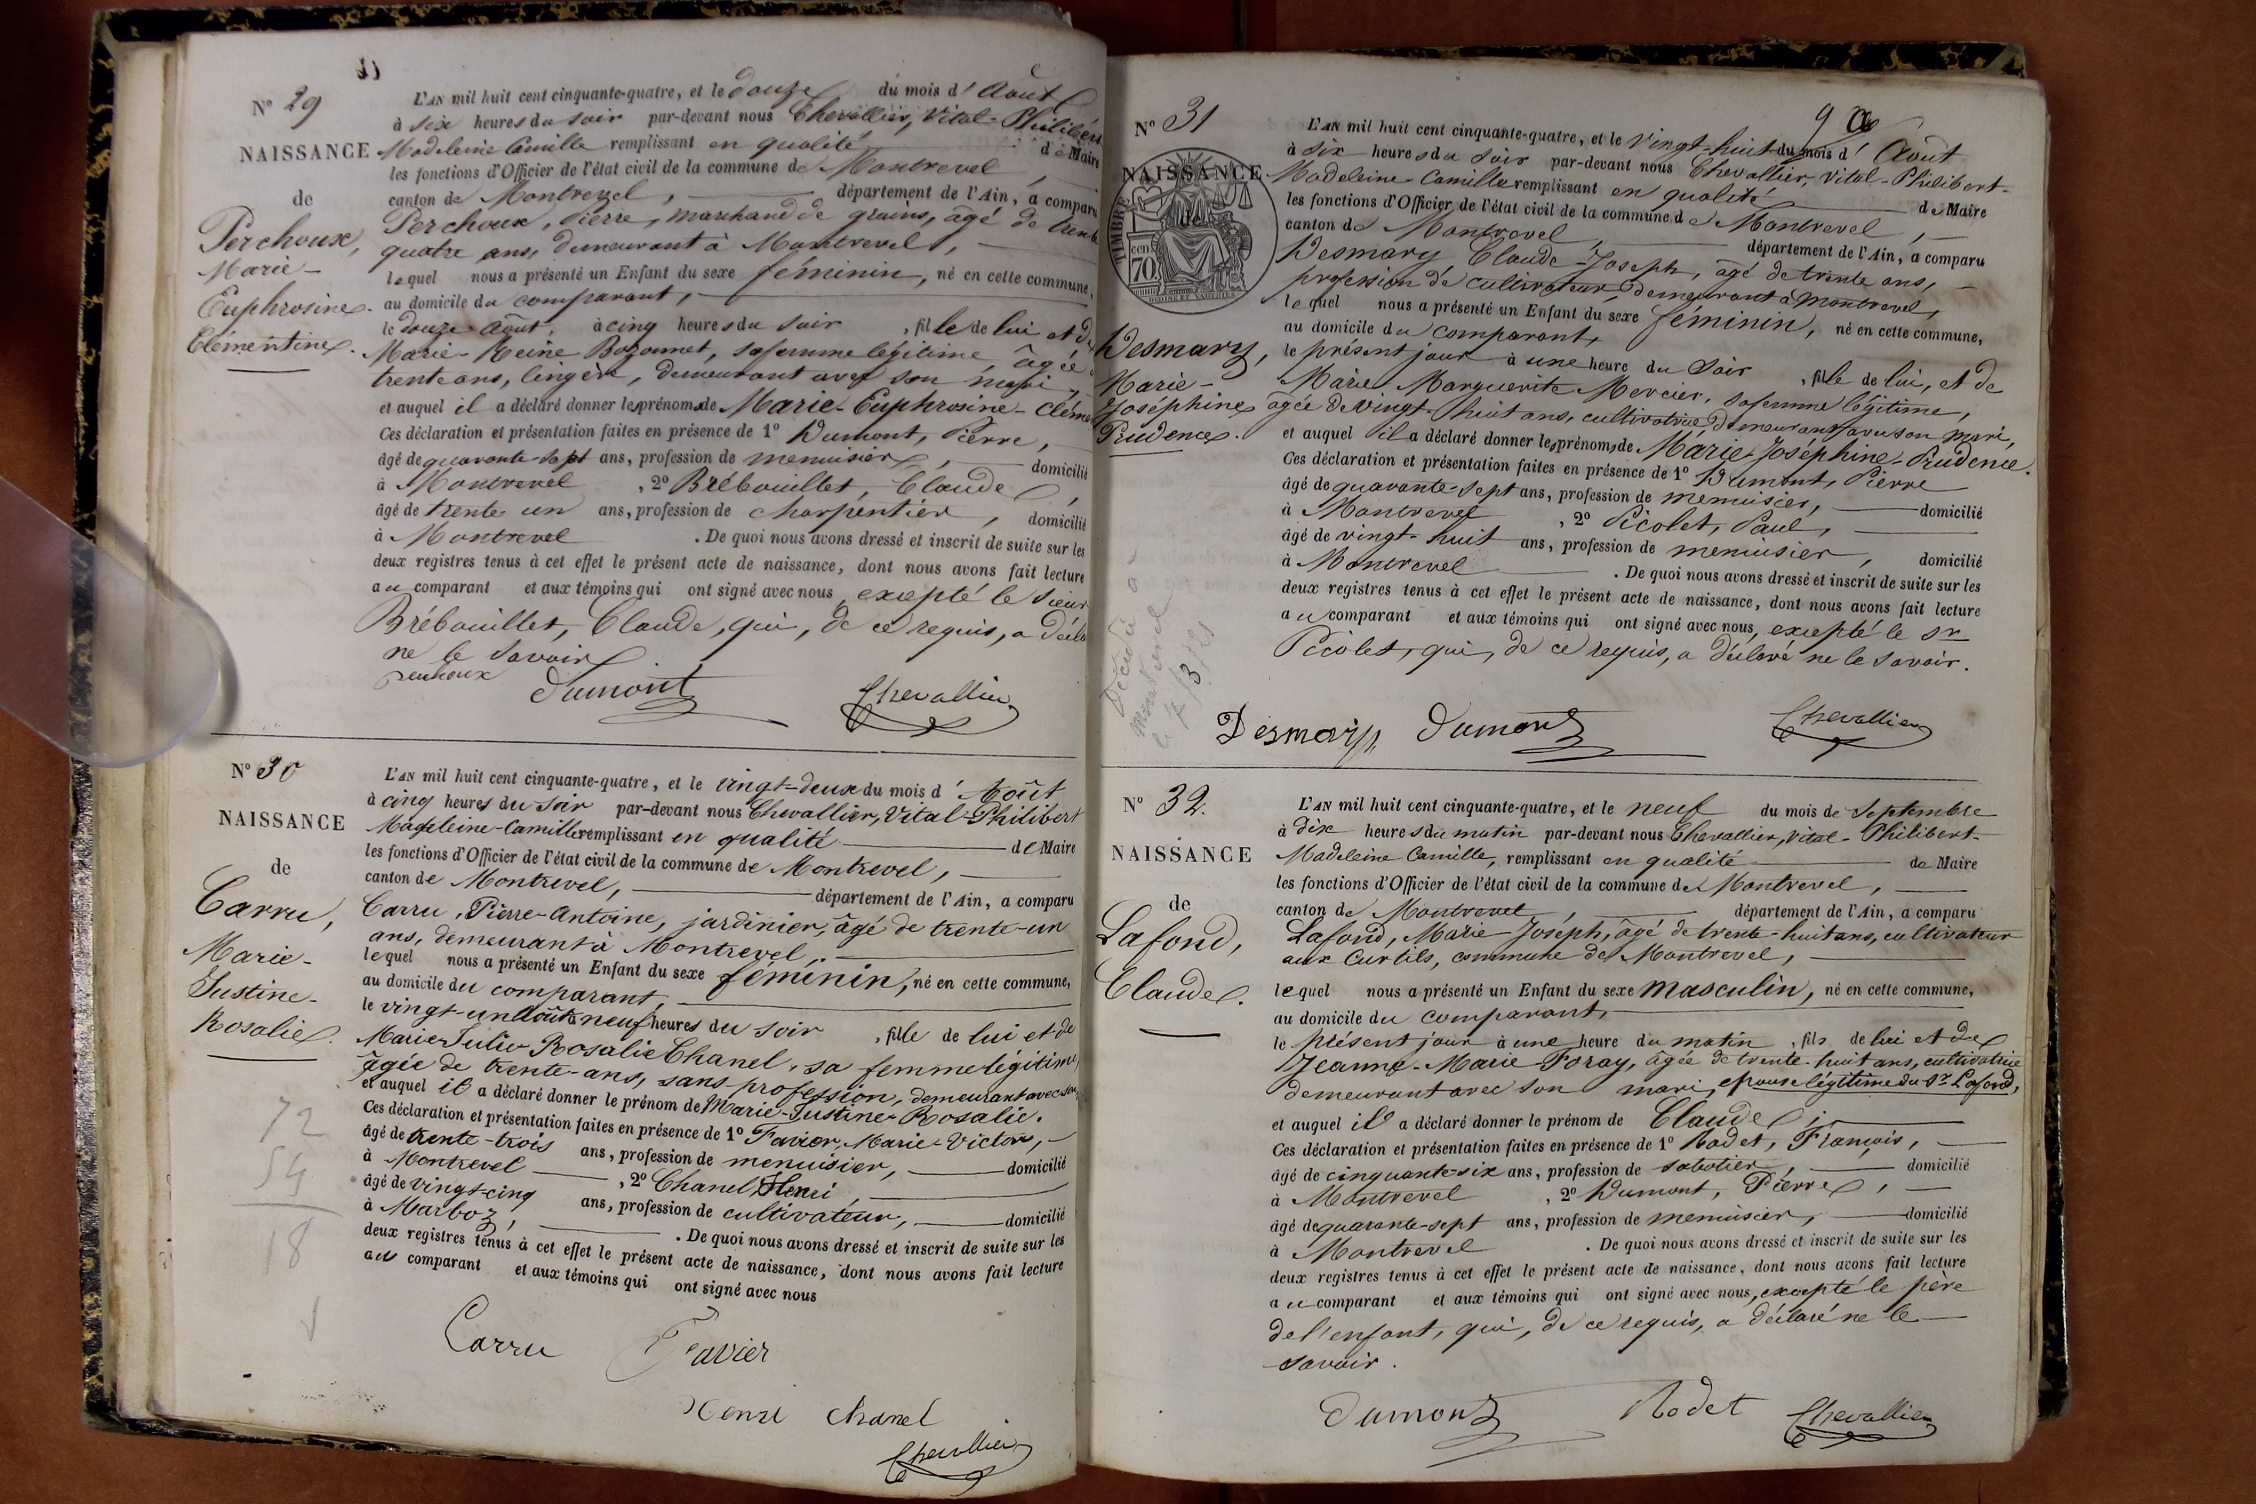 Nº 29
NAISSANCE
de
Perchoux,
Marie-
Euphrosine-
Clémentine.
L'AN mil huit cent cinquante-quatre, et le douze du mois d'Août
à six heures du soir par-devant nous Chevallier, Vital-Philibert
Madeleine Camille remplissant en qualité de Maire
les fonctions d'Officier de l'état civil de la commune de Montrevel,
canton de Montrevel, département de l'Ain, a comparu
Perchoux, Pierre, marchand de grains, âgé de trente
quatre ans, demeurant à Montrevel,
lequel nous a présenté un Enfant du sexe féminin, né en cette commune,
au domicile du comparant,
le douze Août, à cinq heures du soir, fille de lui et de
Marie-Reine Bozonnet, sa femme légitime, âgée de
trente ans, lingère, demeurant avec son mari,
et auquel il a déclaré donner les prénoms de Marie-Euphrosine-Cléme
Ces déclaration et présentation faites en présence de 1º Dumont, Pierre,
âgé de quarante-sept ans, profession de menuisier, domicilié
à Montrevel, 2º Brébouillet, Claude,
âgé de trente un ans, profession de charpentier, domicilié
à Montrevel. De quoi nous avons dressé et inscrit de suite sur les
deux registres tenus à cet effet le présent acte de naissance, dont nous avons fait lecture
au comparant et aux témoins qui ont signé avec nous, excepté le sieur
Brébouillet, Claude, qui, de ce requis, a décla
ne le savoir
Perchoux Dumont Chevallier
Nº 30
NAISSANCE
de
Carru,
Marie-
Justine-
Rosalie.
72
54
18
L'AN mil huit cent cinquante-quatre, et le vingt-deux du mois d'Août
à cinq heures du soir par-devant nous Chevallier, Vital-Philibert
Magdeleine-Camille remplissant en qualité de Maire
les fonctions d'Officier de l'état civil de la commune de Montrevel,
canton de Montrevel, département de l'Ain, a comparu
Carru, Pierre-Antoine, jardinier, âgé de trente-un
ans, demeurant à Montrevel,
lequel nous a présenté un Enfant du sexe féminin, né en cette commune,
au domicile du comparant,
le vingt-un Août à neuf heures du soir, fille de lui et de
Marie Julie Rosalie Chanel, sa femme légitime,
âgée de trente-ans, sans profession, demeurant avec son
et auquel il a déclaré donner le prénom de Marie-Justine-Rosalie.
Ces déclaration et présentation faites en présence de 1º Favier, Marie-Victor,
âgé de trente-trois ans, profession de menuisier, domicilié
à Montrevel, 2º Chanel, Henri,
âgé de vingt-cinq ans, profession de cultivateur, domicilié
à Marboz, . De quoi nous avons dressé et inscrit de suite sur les
deux registres tenus à cet effet le présent acte de naissance, dont nous avons fait lecture
au comparant et aux témoins qui ont signé avec nous
Carru Favier
Henri Chanel
Chevallier
9
Nº 31
NAISSANCE
de
TIMBRE
cen 70
Desmary,
Marie-
Joséphine
Prudence.
Décédée à
Montrevel
le 7/3/
L'AN mil huit cent cinquante-quatre, et le vingt-huit du mois d'Août
à six heures du soir par-devant nous Chevallier, Vital-Philibert-
Madeleine-Camille remplissant en qualité de Maire
les fonctions d'Officier de l'état civil de la commune de Montrevel,
canton de Montrevel, département de l'Ain, a comparu
Desmary Claude-Joseph, âgé de trente ans,
profession de cultivateur, demeurant à Montrevel,
lequel nous a présenté un Enfant du sexe féminin, né en cette commune,
au domicile du comparant,
le présent jour à une heure du soir, fille de lui, et de
Marie-Marguerite Mercier, sa femme légitime,
âgée de vingt-huit ans, cultivatrice, demeurant avec son mari,
et auquel il a déclaré donner les prénoms de Marie-Joséphine-Prudence.
Ces déclaration et présentation faites en présence de 1º Dumont, Pierre
âgé de quarante-sept ans, profession de menuisier, domicilié
à Montrevel, 2º Picolet, Paul,
âgé de vingt-huit ans, profession de menuisier, domicilié
à Montrevel. De quoi nous avons dressé et inscrit de suite sur les
deux registres tenus à cet effet le présent acte de naissance, dont nous avons fait lecture
au comparant et aux témoins qui ont signé avec nous, excepté le sr
Picolet, qui, de ce requis, a déclaré ne le savoir.
Desmary Dumont Chevallier
Nº 32.
NAISSANCE
de
Lafond,
Claude.
L'AN mil huit cent cinquante-quatre, et le neuf du mois de Septembre
à dix heures du matin par-devant nous Chevallier, Vital-Philibert-
Madeleine Camille, remplissant en qualité de Maire
les fonctions d'Officier de l'état civil de la commune de Montrevel,
canton de Montrevel, département de l'Ain, a comparu
Lafond, Marie-Joseph, âgé de trente-huit ans, cultivateur
aux Curtils, commune de Montrevel,
lequel nous a présenté un Enfant du sexe masculin, né en cette commune,
au domicile du comparant,
le présent jour à une heure du matin, fils de lui et de
Jeanne-Marie Foray, âgée de trente-huit ans, cultivatrice
demeurant avec son mari, épouse légitime du Sr Lafond,
et auquel il a déclaré donner le prénom de Claude;
Ces déclaration et présentation faites en présence de 1º Rodet, François,
âgé de cinquante-six ans, profession de sabotier, domicilié
à Montrevel, 2º Dumont, Pierre,
âgé de quarante-sept ans, profession de menuisier, domicilié
à Montrevel. De quoi nous avons dressé et inscrit de suite sur les
deux registres tenus à cet effet le présent acte de naissance, dont nous avons fait lecture
au comparant et aux témoins qui ont signé avec nous, excepté le père
de l'enfant, qui, de ce requis, a déclaré ne le
savoir.
Dumont Rodet Chevallier